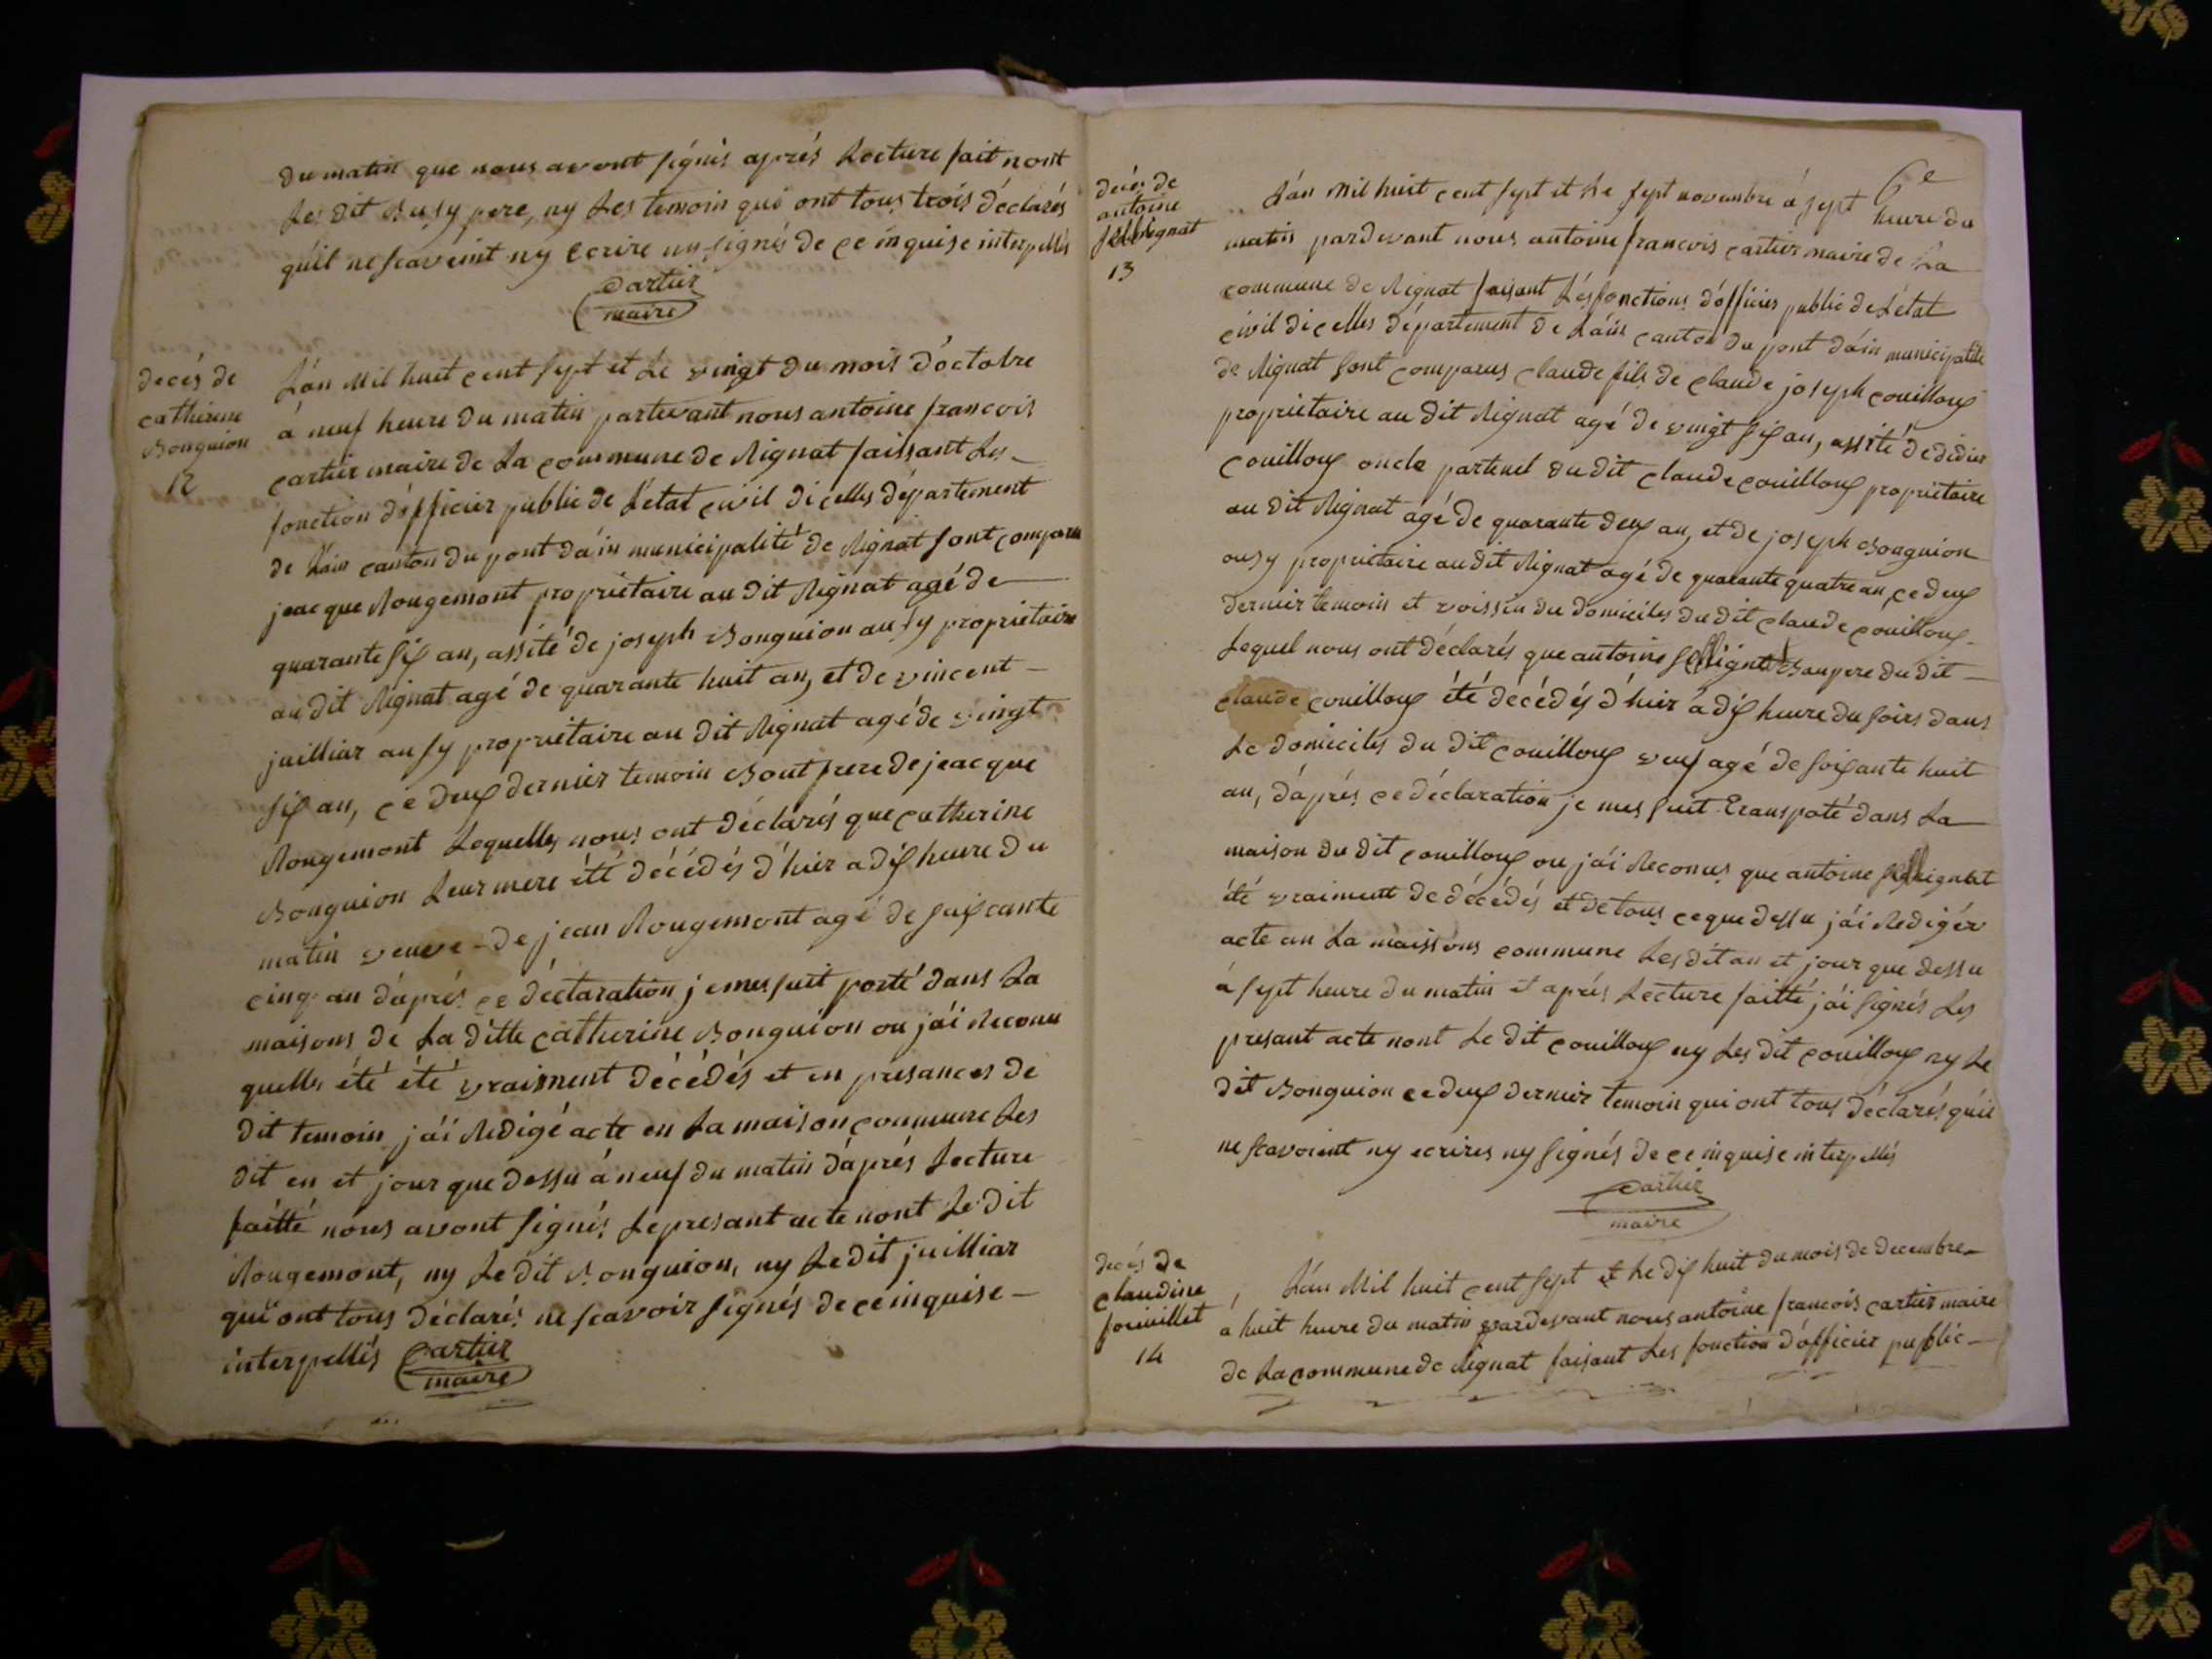 du matin que nous avont signés aprés Lecture fait nont
Le dit Busy pere, ny Les temoin qui ont tous trois déclarés
quil ne scaveint ny Ecrire ny signés de ce inquise interpellés
Cartier
maire
decés de
catherine
Bonguion
12
Lán Mil huit cent sept et Le vingt du mois dóctobre
á neuf heure du matin partevant nous antoine francois
cartier maire de La commune de Rignat faissant Les
fonction dófficier public de Létat civil dicelles département
de Láin canton du pont dáin municipalité de Rignat sont comparu
jeacque Rougemont propriétaire au dit Rignat agé de
quarante six an, assité de joseph Bonguion ausy propriétaire
au dit Rignat agé de quarante huit an, et de vincent
juilliar ausy propriétaire au dit Rignat agé de vingt
six an, ce deux dernier temoin Bont frere de jeacque
Rougemont Lequelles nous ont déclarés que catherine
Bonguion Leur mere été décédés d'hier a dix heure du
matin veuve de jean Rougemont agé de soixcante
cinq an dáprés ce déclaration je mes suit porté dans La
maisons de La ditte catherine Bonguion ou jái Reconu
quelles été été vraisment décédés et en presances de
dit temoin jái Redigé acte en La maison commune Les
dit en et jour que dessu á neuf du matin dáprés Lecture
faitté nous avont signés Le presant acte nont Le dit
Rougemont, ny Le dit Bonguion, ny Le dit juilliar
qui ont tous déclarés ne scavoir signés de ce inquise
interpellés Cartier
maire
6e
decés de
antoine
13
Lán Mil huit cent sept et Le sept novembre á sept heure du
matin pardevant nous antoine francois cartier maire de La
commune de Rignat faisant Les fonctions dófficier public de Létat
civil dicelles département de Láin canton du pont dáin municipalité
de Rignat sont comparus claude fils de claude joseph couilloux
propriétaire au dit Rignat agé de vingt six an, assité de didier
couilloux oncle parternel du dit claude couilloux propriétaire
au dit Rignat agé de quarante deux an, et de joseph Bonguion
ausy propriétaire au dit Rignat agé de quarante quatre an, ce deux
dernier temoin et voissin du domiciles du dit claude couilloux
Lequel nous ont déclarés que antoine Baupere du dit
claude couilloux été décédés d'hier á dix heure du soirs dans
Le domiciles du dit couilloux veuf agé de soixante huit
an, dáprés ce déclaration je mes suit Transpoté dans La
maison du dit couilloux ou jái Reconus que antoine
été vraiment de décédés et de tous ce que dessu jái Redigér
acte en La maissons commune Les dit an et jour que dessu
á sept heure du matin et aprés Lecture faitté jái signés Les
presant acte nont Le dit couilloux ny Les dit couilloux ny Le
dit Bonguion ce deux dernier temoin qui ont tous déclarés quil
ne scavoient ny ecrires ny signés de ce inquise interpellés
Cartier
maire
decés de
claudine
14
Lán Mil huit cent sept et Le dix huit du mois de decembre
á huit heure du matin pardevant nous antoine francois cartier maire
de La commune de Rignat faisant Les fonction dófficier public